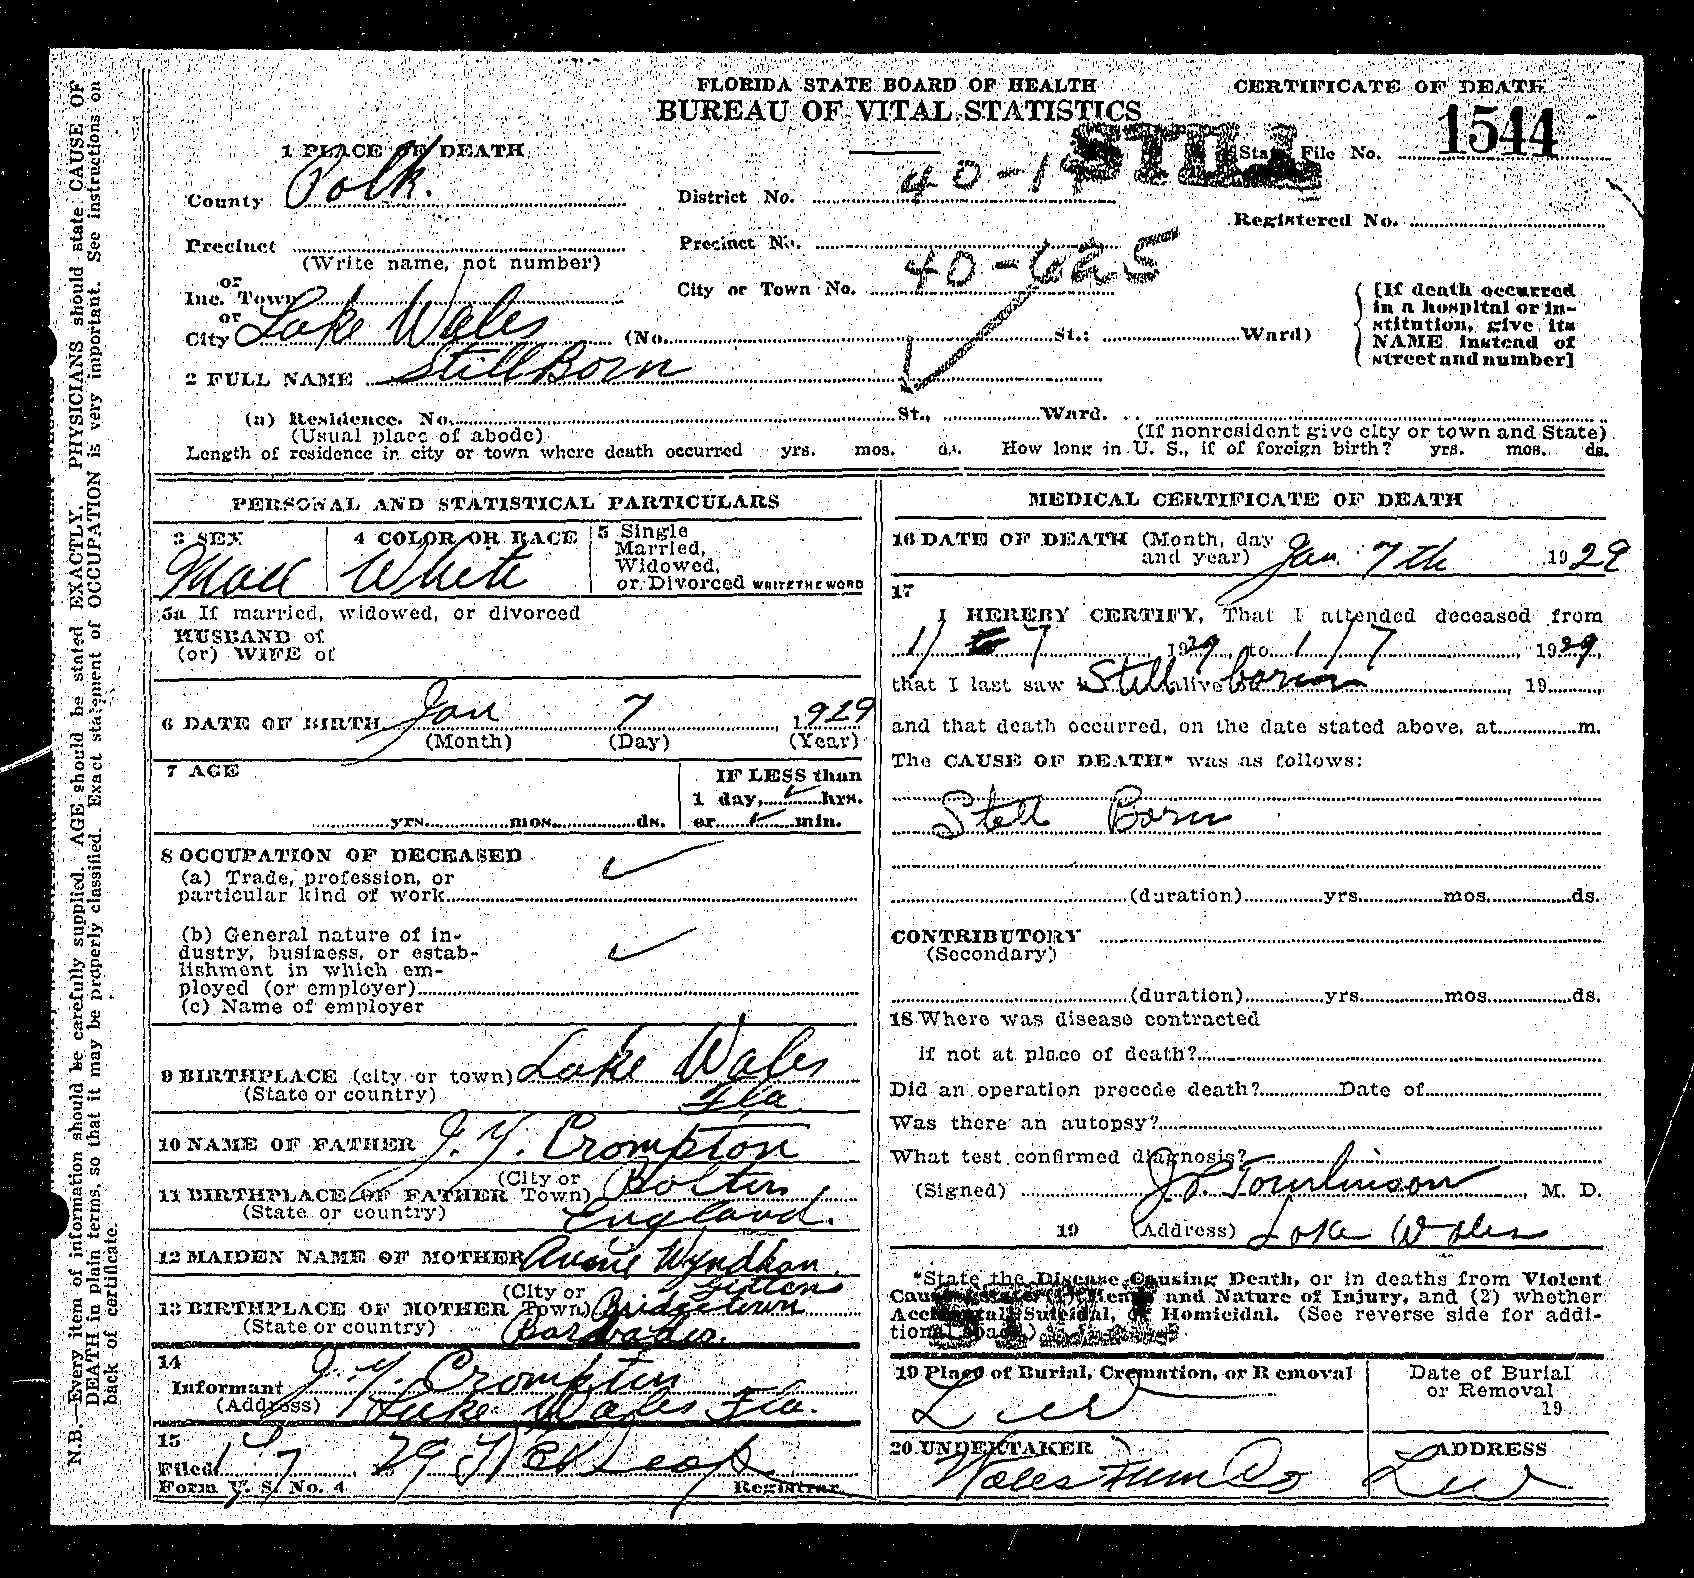 FLORIDA STATE BOARD OF HEALTH
BUREAU OF VITAL STATISTICS
CERTIFICATE OF DEATH
STILL
State File No. 1544
1 PLACE OF DEATH
County Polk.
District No. 40-19
Registered No.
Precinct
(Write name, not number)
Precinct No.
or
Inc. Town
City or Town No. 40-625
or
City Lake Wales (No. St.; Ward)
[If death occurred
in a hospital or in-
stitution, give its
NAME instead of
street and number]
2 FULL NAME Still Born
(a) Residence. No. St., Ward.
(Usual place of abode)
(If nonresident give city or town and State)
Length of residence in city or town where death occurred yrs. mos. ds. How long in U. S., if of foreign birth? yrs. mos. ds.
PERSONAL AND STATISTICAL PARTICULARS
3 SEX
Male
4 COLOR OR RACE
White
5 Single
Married,
Widowed,
or Divorced WRITE THE WORD
5a If married, widowed, or divorced
HUSBAND of
(or) WIFE of
6 DATE OF BIRTH Jan 7 1929
(Month) (Day) (Year)
7 AGE
yrs. mos. ds.
IF LESS than
1 day, hrs.
or min.
8 OCCUPATION OF DECEASED
(a) Trade, profession, or
particular kind of work
(b) General nature of in-
dustry, business, or estab-
lishment in which em-
ployed (or employer)
(c) Name of employer
9 BIRTHPLACE (city or town) Lake Wales
(State or country) Fla
10 NAME OF FATHER J. Y. Crompton
11 BIRTHPLACE OF FATHER (City or Town) Bolton
(State or country) England.
12 MAIDEN NAME OF MOTHER Annie Wyndham
Gittens
13 BIRTHPLACE OF MOTHER (City or Town) Bridgetown
(State or country) Barbados.
14
Informant J. Y. Crompton
(Address) Lake Wales Fla.
15
Filed 1-7 29
Registrar.
Form V. S. No. 4
MEDICAL CERTIFICATE OF DEATH
16 DATE OF DEATH (Month, day
and year) Jan. 7th 1929
17
I HEREBY CERTIFY, That I attended deceased from
1/7 1929, to 1/7 1929,
that I last saw h Still alive on born, 19 ,
and that death occurred, on the date stated above, at m.
The CAUSE OF DEATH* was as follows:
Still Born
(duration) yrs. mos. ds.
CONTRIBUTORY
(Secondary)
(duration) yrs. mos. ds.
18 Where was disease contracted
if not at place of death?
Did an operation precede death? Date of
Was there an autopsy?
What test confirmed diagnosis?
(Signed) Tomlinson, M. D.
19 (Address) Lake Wales
*State the Disease Causing Death, or in deaths from Violent
Causes, state (1) Means and Nature of Injury, and (2) whether
Accidental, Suicidal, or Homicidal. (See reverse side for addi-
tional space.)
19 Place of Burial, Cremation, or Removal
Date of Burial
or Removal
19
20 UNDERTAKER
Wales Furn Co
ADDRESS
N.B.—Every item of information should be carefully supplied. AGE should be stated EXACTLY. PHYSICIANS should state CAUSE OF
DEATH in plain terms, so that it may be properly classified. Exact statement of OCCUPATION is very important. See instructions on
back of certificate.